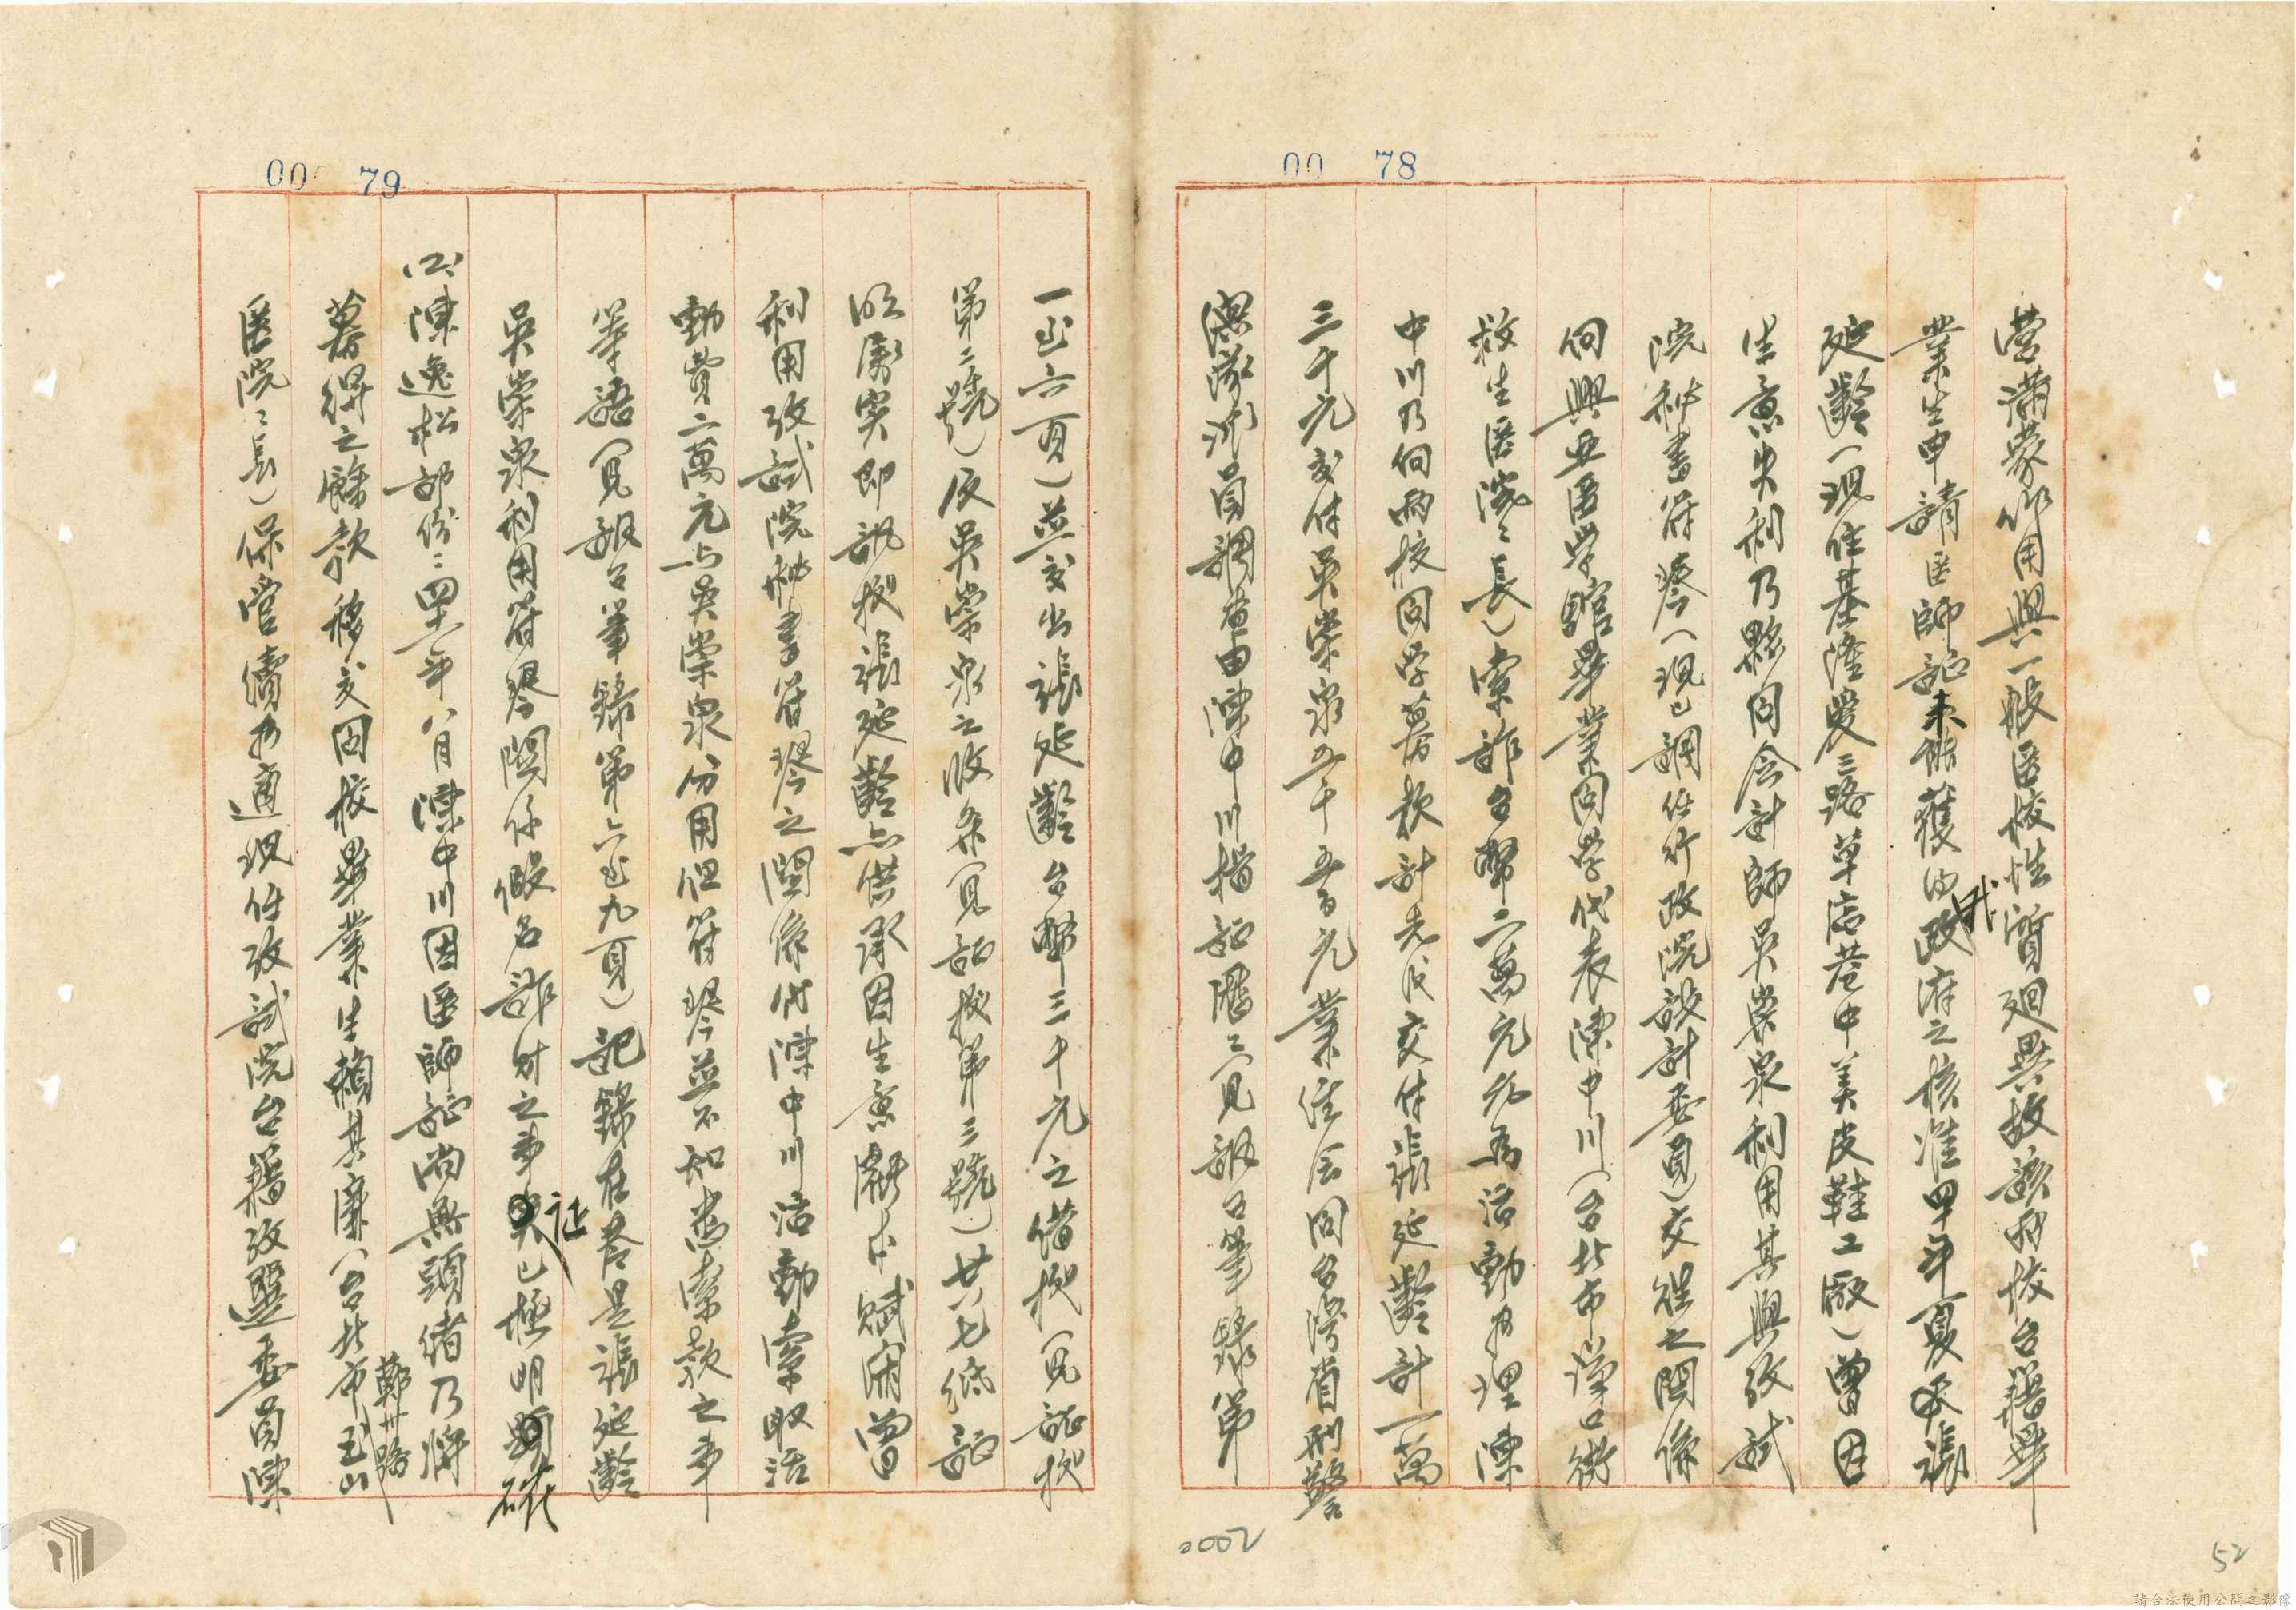 00 78
營滿蒙作用與一般医校性質迥異故該兩校台籍畢
業生申請医師証未能獲得我政府之核准四一年夏張
延齡(現住基隆愛三路草店巷中美皮鞋工廠)曾因
生意失利乃夥同会計師吳崇泉利用其與攷試
院秘書符琴(現已調任行政院設計委員)交往之關係
向興亞医学舘畢業同学代表陳中川(台北市漢口街
救生医院々長)索詐台幣二萬元允為活動辦理陳
中川乃向兩校同学募款計先後交付張延齡計一萬
三千元交付吳崇泉五千五百元業經会同台灣省刑警
總隊派員調查由陳中川指証歷々(見訊問筆錄第
00 79
一至六頁)並交出張延齡台幣三千元之借據(見証據
第二號)及吳崇泉之收条(見証據第三號)共七紙証
明屬实即訊據張延齡亦供承因生意虧本賦閒曾
利用攷試院秘書符琴之關係代陳中川活動索取活
動費二萬元与吳崇泉分用但符琴並不知悉索款之事
等語(見訊問筆錄第六至九頁)記錄在卷是張延齡
吳崇泉利用符琴關係假名詐財之事証已極明確
(2)陳逸松部份:四一年八月陳中川因医師証尚無頭緒乃將
募得之餘款移交同校畢業生賴其廉(台北市鄭州路玉山
医院々長)保管續辦適現任攷試院台籍攷選委員陳
0002
52
請合法使用公開之影像